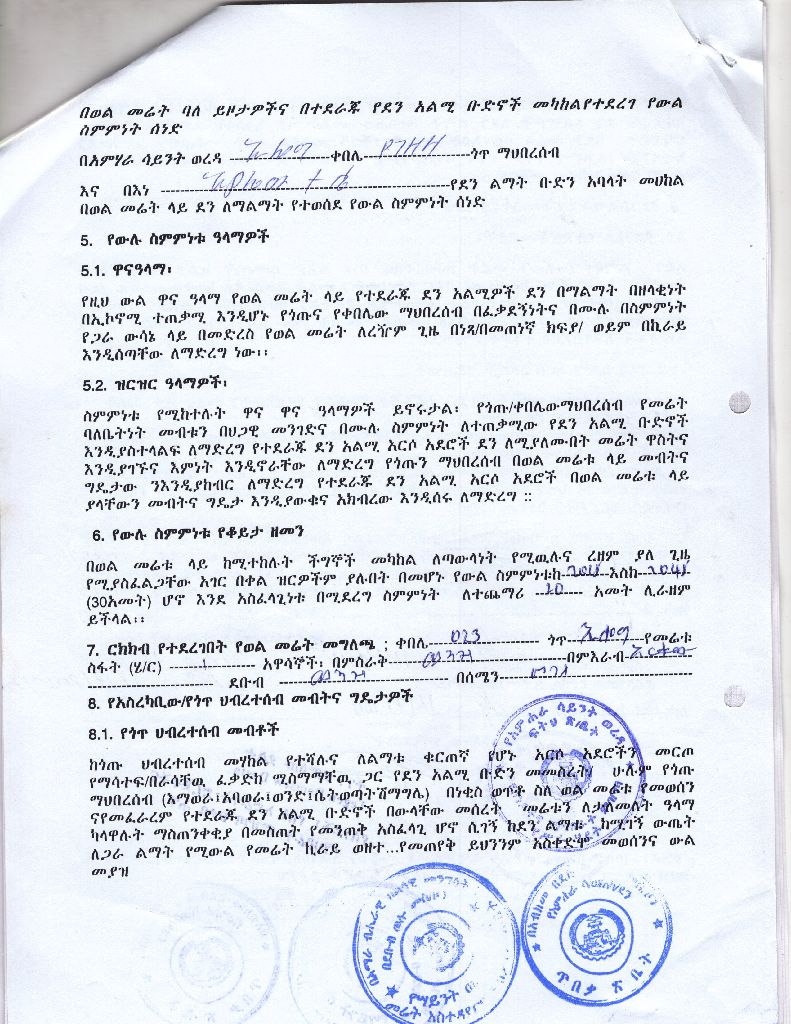 በወል መሬት ባለ ይዞታዎችና በተደራጁ የደን አልሚ ቡድኖች መካከልየተደረገ የውል
ስምምነት ሰነድ
በአምሃራ ሳይንት ወረዳ ቀበሌ ጎጥ ማህበረሰብ
እና በእነ የደን ልማት ቡድን አባላት መሀከል
በወል መሬት ላይ ደን ለማልማት የተወሰደ የውል ስምምነት ሰነድ
5. የውሉ ስምምነቱ ዓላማዎች
5.1. ዋናዓላማ፡
የዚህ ውል ዋና ዓላማ የወል መሬት ላይ የተደራጁ ደን አልሚዎች ደን በማልማት በዘላቂነት
በኢኮኖሚ ተጠቃሚ እንዲሆኑ የጎጡና የቀበሌው ማህበረሰብ በፈቃደኝነትና በሙሉ በስምምነት
የጋራ ውሳኔ ላይ በመድረስ የወል መሬት ለረዥም ጊዜ በነጻ/በመጠነኛ ክፍያ/ ወይም በኪራይ
እንዲሰጣቸው ለማድረግ ነው፡፡
5.2. ዝርዝር ዓላማዎች፡
ስምምነቱ የሚከተሉት ዋና ዋና ዓላማዎች ይኖሩታል፡ የጎጡ/ቀበሌውማህበረሰብ የመሬት
ባለቤትነት መብቱን በህጋዊ መንገድና በሙሉ ስምምነት ለተጠቃሚው የደን አልሚ ቡድኖች
እንዲያስተላልፍ ለማድረግ የተደራጁ ደን አልሚ አርሶ አደሮች ደን ለሚያለሙበት መሬት ዋስትና
እንዲያገኙና እምነት እንዲኖራቸው ለማድረግ የጎጡን ማህበረሰብ በወል መሬቱ ላይ መብትና
ግዴታው ንእንዲያከብር ለማድረግ የተደራጁ ደን አልሚ አርሶ አደሮች በወል መሬቱ ላይ
ያላቸውን መብትና ግዴታ እንዲያውቁና አክብረው እንዲሰሩ ለማድረግ ::
6. የውሉ ስምምነቱ የቆይታ ዘመን
በወል መሬቱ ላይ ከሚተከሉት ችግኞች መካከል ለጣውላነት የሚዉሉና ረዘም ያለ ጊዜ
የሚያስፈልጋቸው አገር በቀል ዝርዎችም ያሉበት በመሆኑ የውል ስምምነቱከ እስከ
(30አመት) ሆኖ እንደ አስፈላጊነቱ በሚደረግ ስምምነት ለተጨማሪ 20 አመት ሊራዘም
ይችላል፡፡
7. ርክክብ የተደረገበት የወል መሬት መግለጫ ; ቀበሌ 023 ጎጥ የመሬቱ
ስፋት (ሄ/ር) 1 አዋሳኞች፡ በምስራቅ በምእራብ
ደቡብ በሰሜን
8. የአስረካቢው/የጎጥ ህብረተሰብ መብትና ግዴታዎች
8.1. የጎጥ ህብረተሰብ መብቶች
ከጎጡ ህብረተሰብ መሃከል የተሻሉና ለልማቱ ቁርጠኛ የሆኑ አርሶ አደሮችን መርጦ
የማሳተፍ/በራሳቸዉ ፈቃድከ ሚስማማቸዉ ጋር የደን አልሚ ቡድን መመስረት/ ሁሉም የጎጡ
ማህበረሰብ (እማወራ፤አባወራ፤ወንድ፤ሴትወጣትሽማግሌ) በነቂስ ወጥቶ ስለ ወል መሬቱ የመወሰን
ናየመፈራረም የተደራጁ ደን አልሚ ቡድኖች በውላቸው መሰረት መሬቱን ለታለመለት ዓላማ
ካላዋሉት ማስጠንቀቂያ በመስጠት የመንጠቅ አስፈላጊ ሆኖ ሲገኝ ከደን ልማቱ ከሚገኝ ውጤት
ለጋራ ልማት የሚውል የመሬት ኪራይ ወዘተ...የመጠየቅ ይህንንም አስቀድሞ መወሰንና ውል
መያዝ
የአምሐራ ሳይንት ወረዳ
ፍትህ ጽ/ቤት
ጥበቃ ጽ ቤት